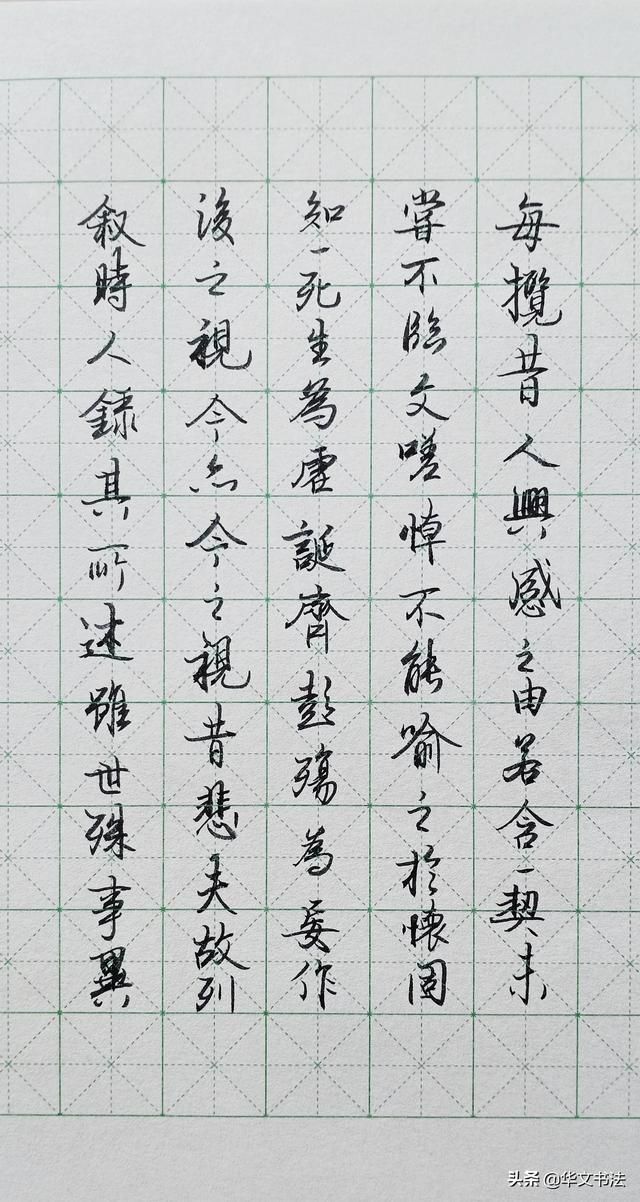 每攬昔人興感之由若合一契未
嘗不臨文嗟悼不能喻之於懷固
知一死生為虛誕齊彭殤為妄作
後之視今亦今之視昔悲夫故列
叙時人錄其所述雖世殊事異
头条 @华文书法